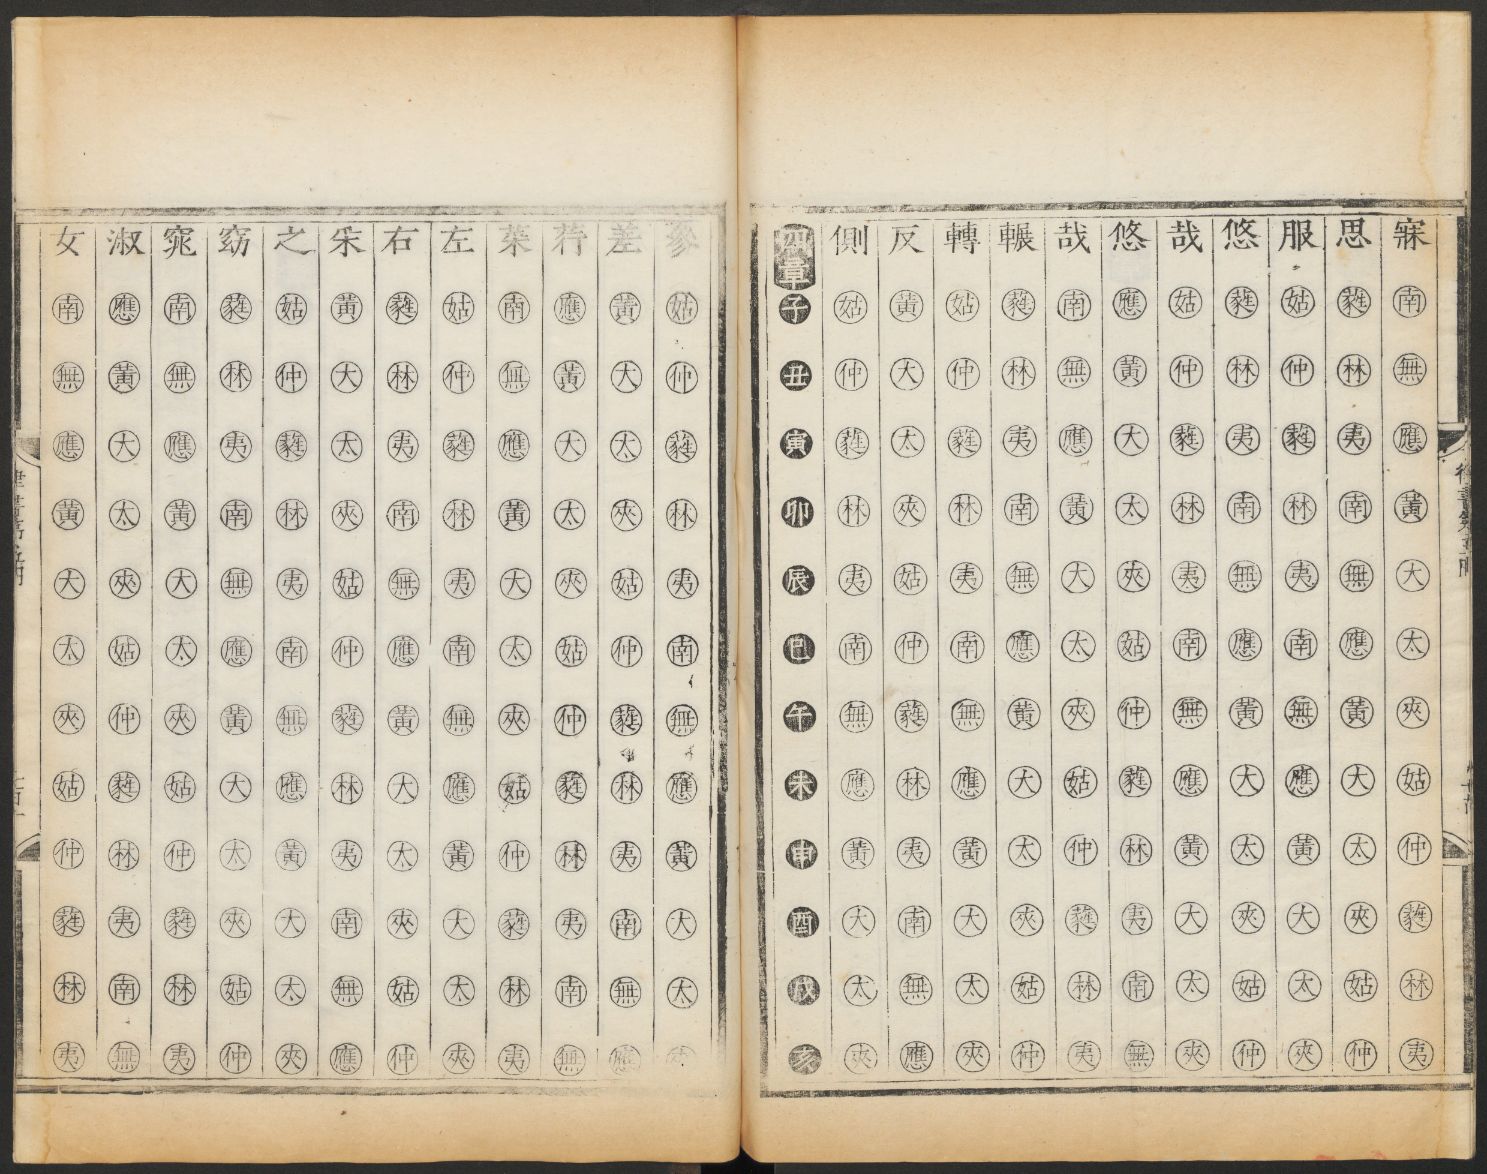 寐南無應黃大太夾姑仲蕤林夷
思蕤林夷南無應黃大太夾姑仲
服姑仲蕤林夷南無應黃大太夾
悠蕤林夷南無應黃大太夾姑仲
哉姑仲蕤林夷南無應黃大太夾
悠應黃大太夾姑仲蕤林夷南無
哉南無應黃大太夾姑仲蕤林夷
輾蕤林夷南無應黃大太夾姑仲
轉姑仲蕤林夷南無應黃大太夾
反黃大太夾姑仲蕤林夷南無應
側姑仲蕤林夷南無應黃大太夾
四章子丑寅卯辰巳午未申酉戌亥
參姑仲蕤林夷南無應黃大太夾
差黃大太夾姑仲蕤林夷南無應
荇應黃大太夾姑仲蕤林夷南無
菜南無應黃大太夾姑仲蕤林夷
左姑仲蕤林夷南無應黃大太夾
右蕤林夷南無應黃大太夾姑仲
采黃大太夾姑仲蕤林夷南無應
之姑仲蕤林夷南無應黃大太夾
窈蕤林夷南無應黃大太夾姑仲
窕南無應黃大太夾姑仲蕤林夷
淑應黃大太夾姑仲蕤林夷南無
女南無應黃大太夾姑仲蕤林夷